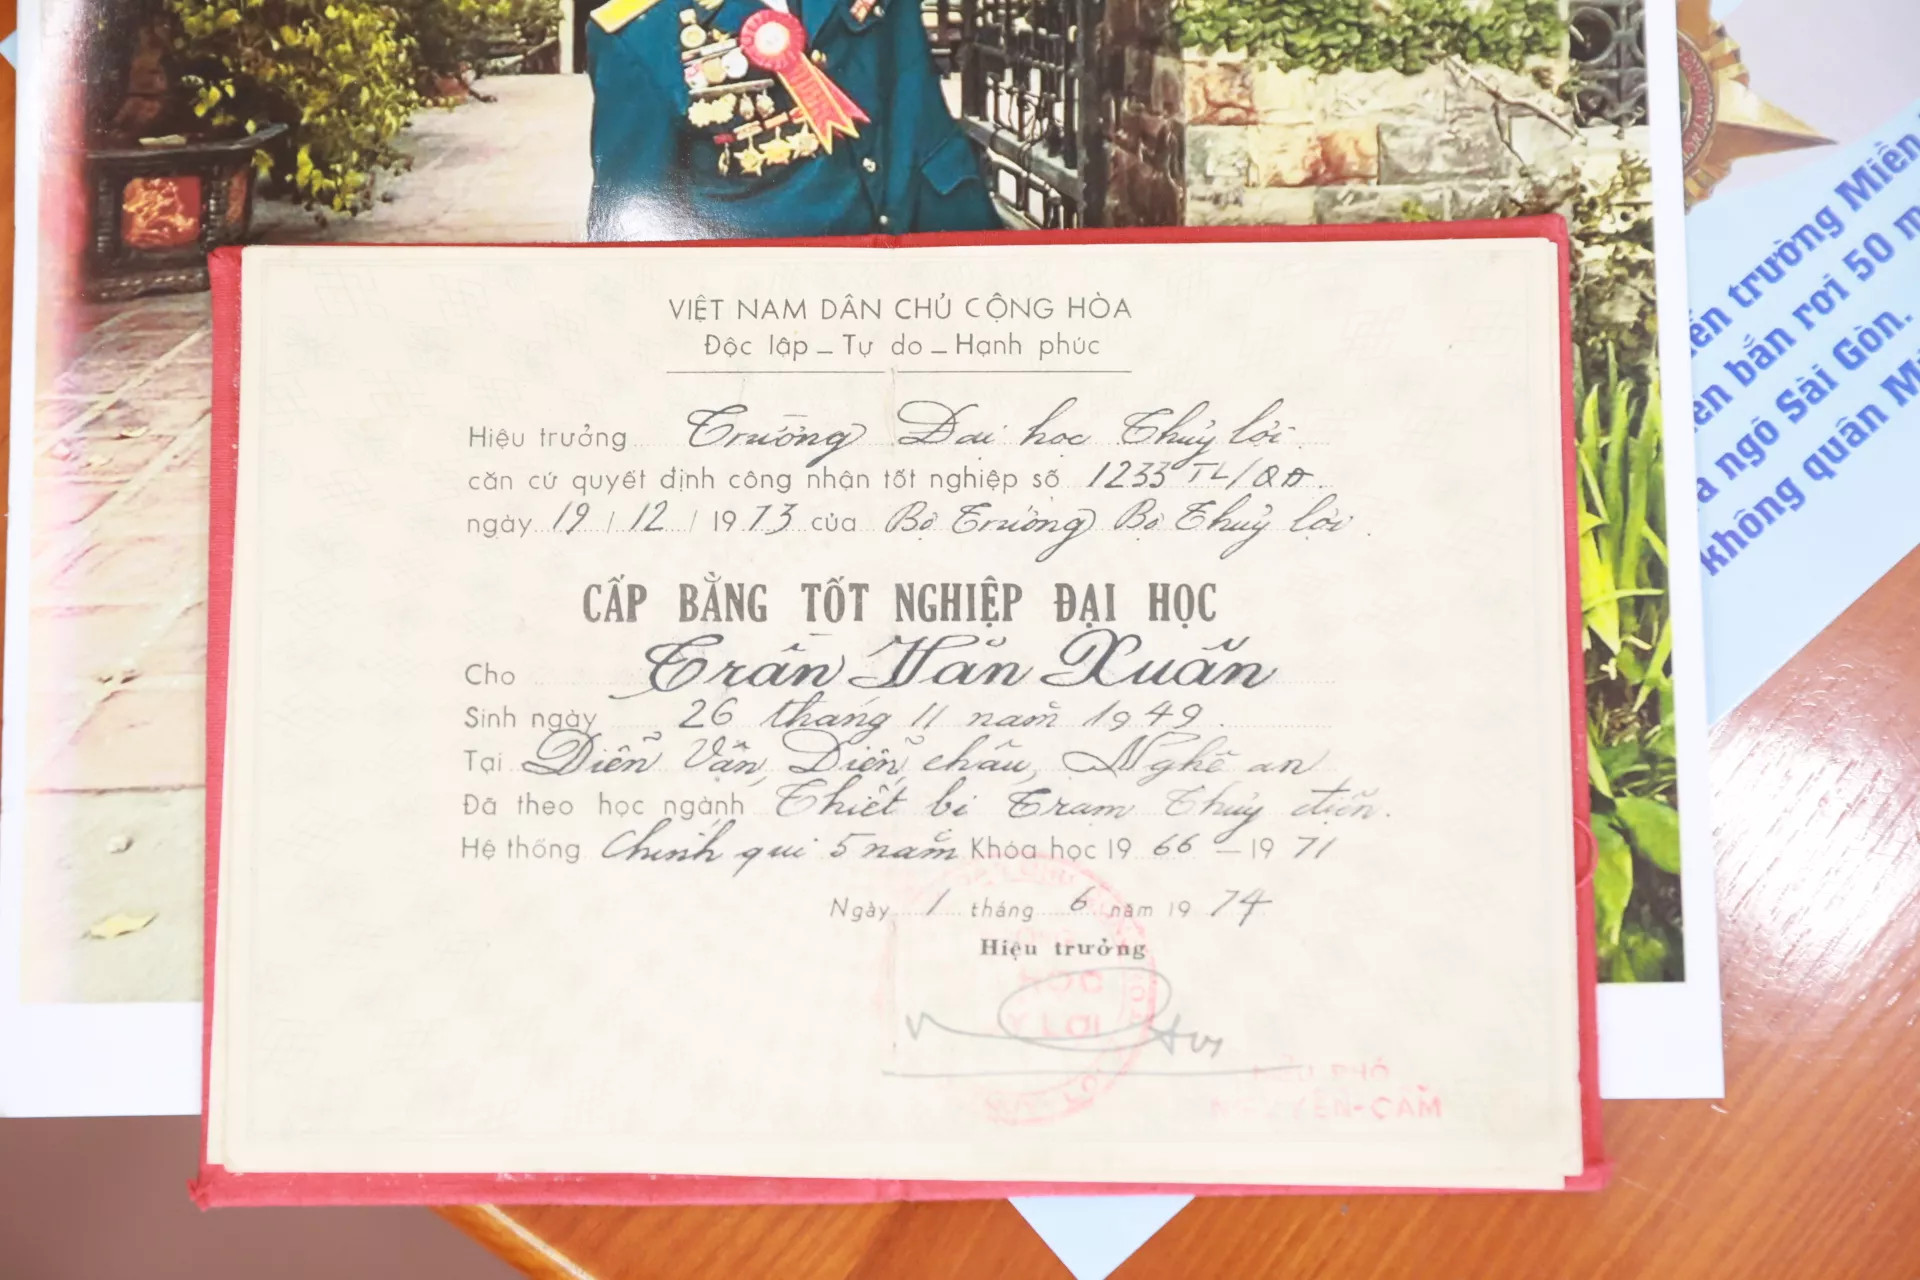 VIỆT NAM DÂN CHỦ CỘNG HÒA
Độc lập _ Tự do _ Hạnh phúc
Hiệu trưởng Trường Đại học Thủy lợi
căn cứ quyết định công nhận tốt nghiệp số 1233 TL/QĐ.
ngày 19 / 12 / 1973 của Bộ Trưởng Bộ Thuỷ lợi.
CẤP BẰNG TỐT NGHIỆP ĐẠI HỌC
Cho Trần Văn Xuân
Sinh ngày 26 tháng 11 năm 1949.
Tại Diễn Vân, Diễn châu, Nghệ an
Đã theo học ngành Thiết bị Trạm Thủy điện.
Hệ thống Chính qui 5 năm Khóa học 19 66 - 19 71
Ngày 1 tháng 6 năm 19 74
Hiệu trưởng
HIỆU PHÓ
NGUYỄN-CẢM
trường Miền
bắn rơi 50
ngõ Sài Gòn.
không quân